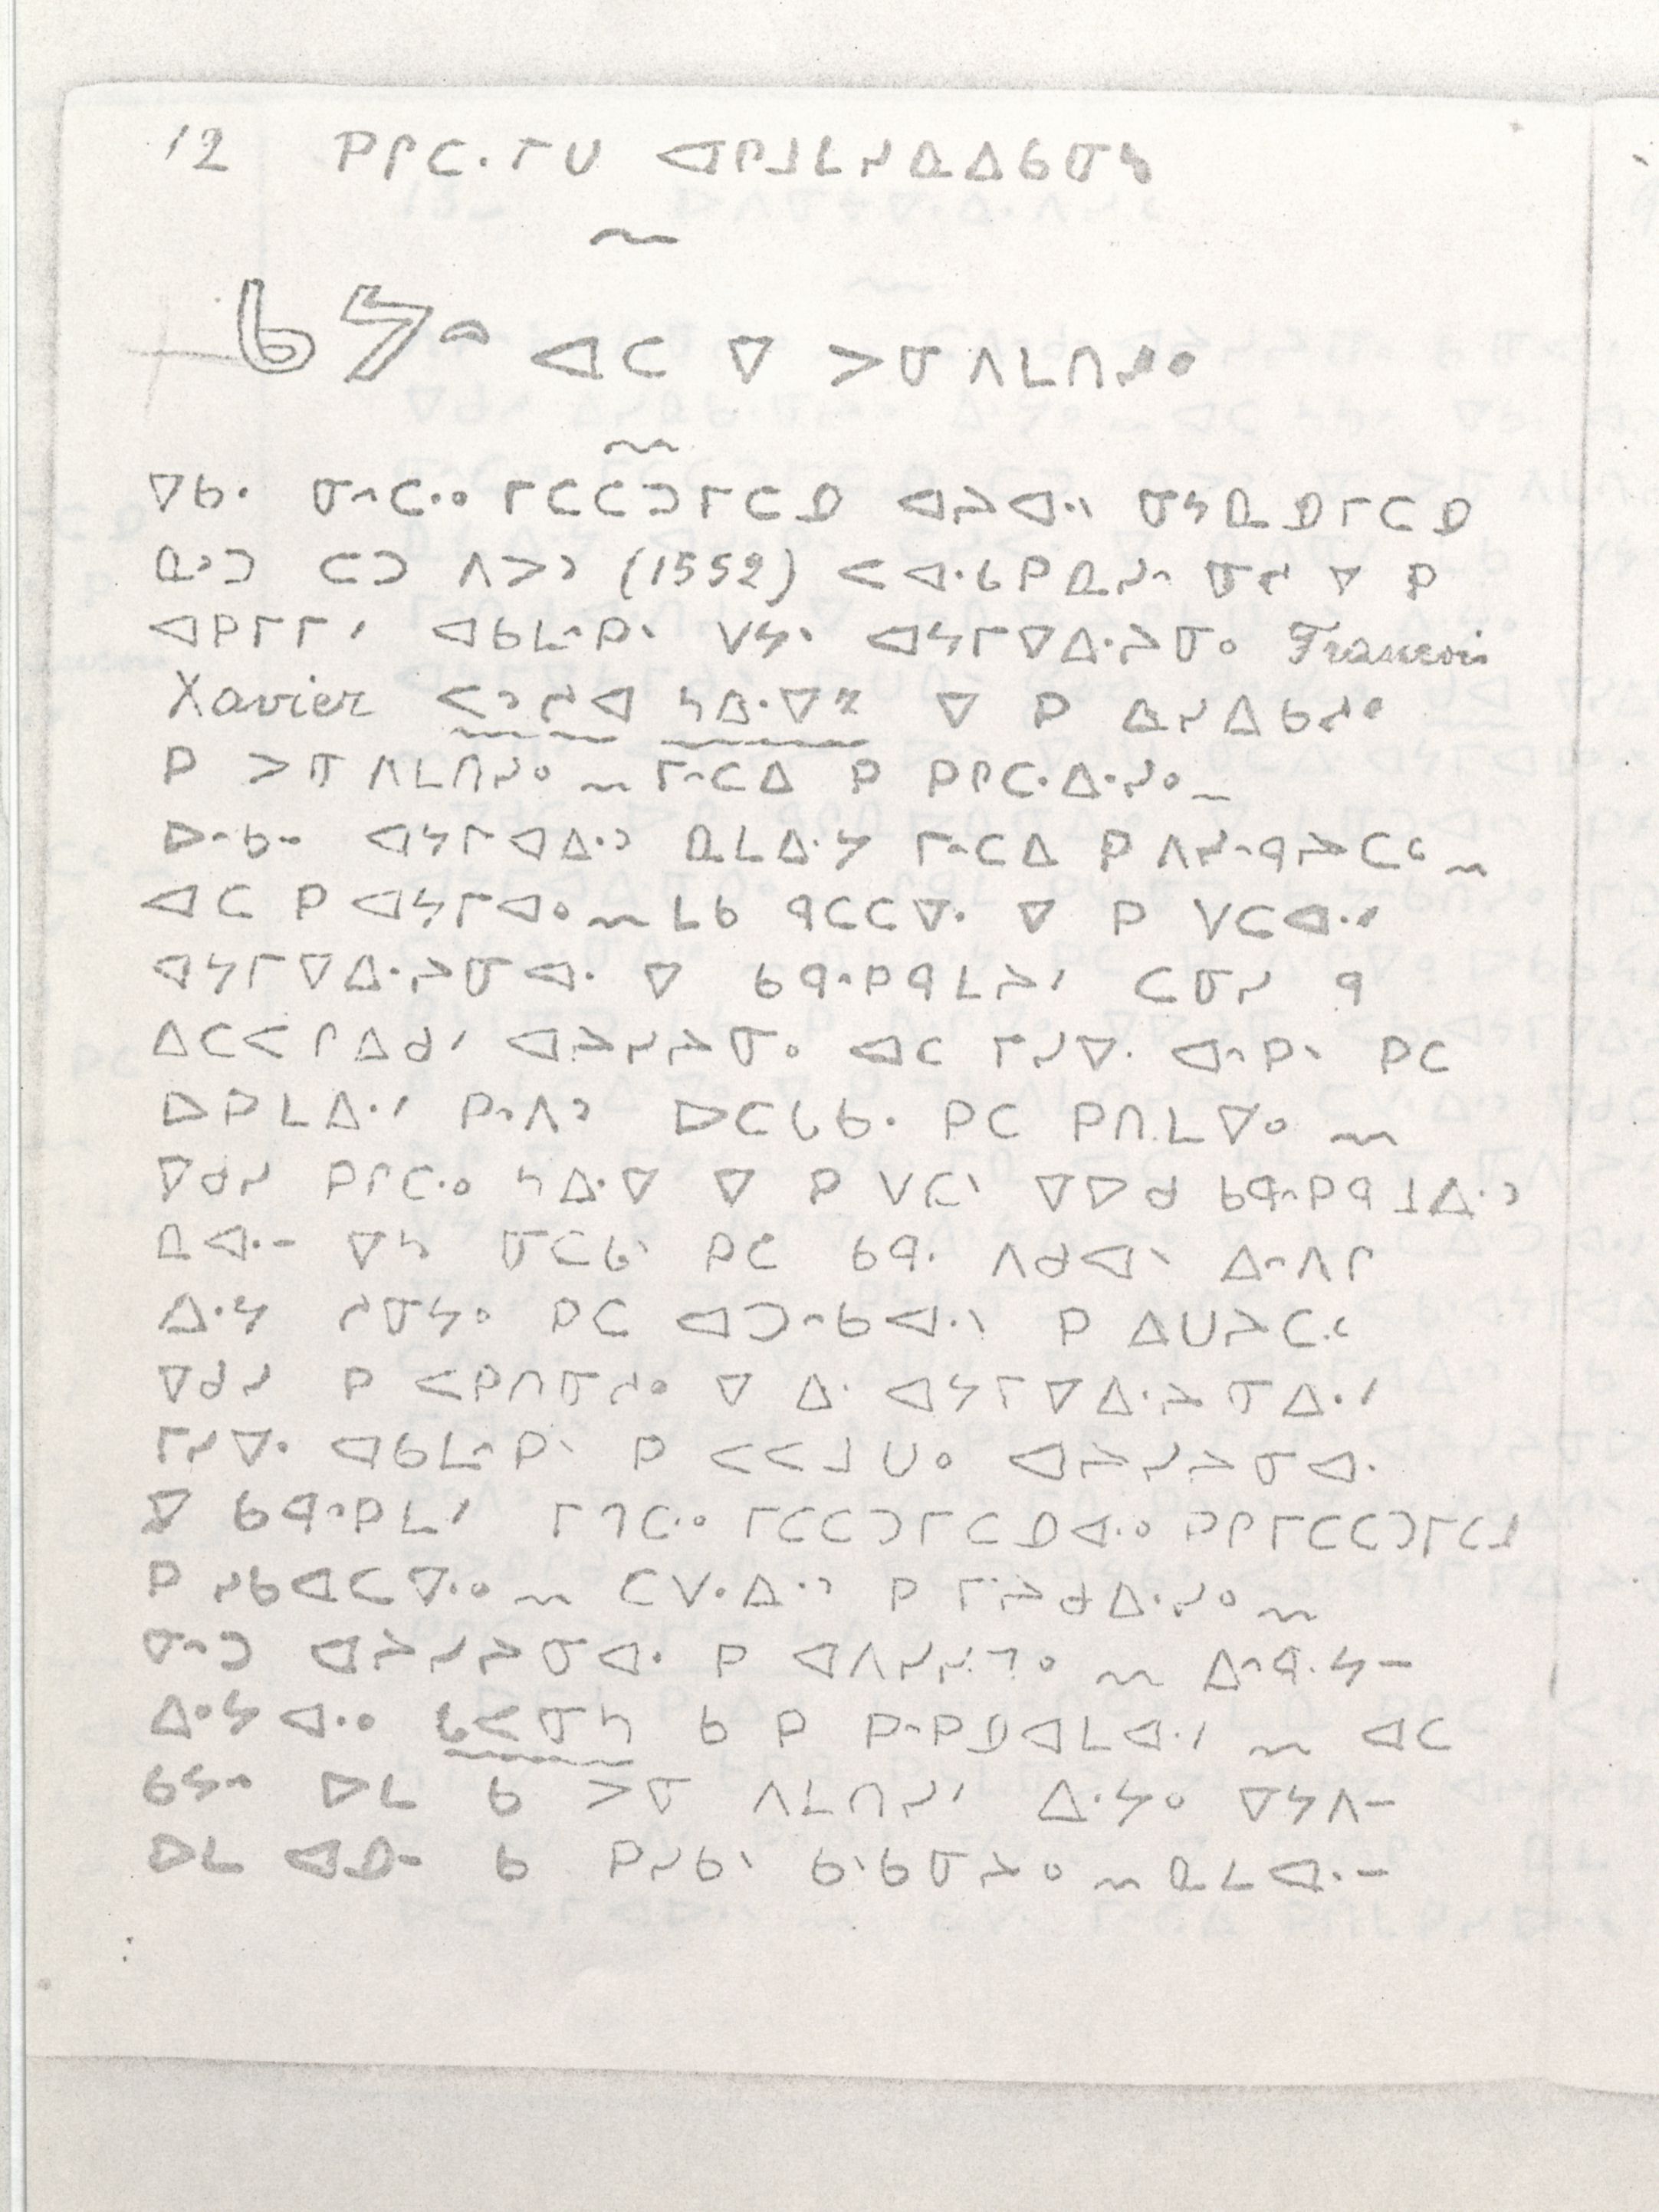 12 ᑭᒋᑕᐧᒥᑌ ᐊᑭᒧᒪᓱᓇᐃᑲᓂᓴ
ᑲᔭᐢ ᐊᑕ ᐁ ᐳᓂᐱᒪᑎᓯᐤ
ᐁᑲᐧ ᓂᐢᑕᐧᐤ ᒥᑕᑕᑐᒥᑕᓄ ᐊᔨᐊᐧᐠ ᓂᔭᓇᓄᒥᑕᓄ
ᓇᐣᑐ ᑕᑐ ᐱᐳᐣ (1552) ᐸᐊᐧᑲᑭᓇᓯᐢ ᓂᓯ ᐁ ᑭ
ᐊᑭᒥᒥᐟ ᐊᑲᒪᐢᑭᐠ ᐯᔭᐧ ᐊᔭᒥᐁᐃᐧᔨᓂᐤ Francois
Xavier ᐸᐣᓯᐊ ᓴᐃᐧᐁᕽ ᐁ ᑭ ᐃᓯᐃᑲᓱᐤ
ᑭ ᐳᓂ ᐱᒪᑎᓯᐤ ᒥᐢᑕᐃ ᑭ ᑭᒋᑕᐧᐃᐧᓯᐤ
ᐅᐢᑲᐨ ᐊᔭᒥᐊᐃᐧᐣ ᓇᒪᐃᐧᔭ ᒥᐢᑕᐃ ᑭ ᐱᓯᐢᑫᔨᑕᒼ
ᐊᑕ ᑭ ᐊᔭᒥᐊᐤ ᒪᑲ ᑫᑕᑕᐁᐧ ᐁ ᑭ ᐯᑕᐊᐧᐟ
ᐊᔭᒥᐁᐃᐧᔨᓂᐊᐧ ᐁ ᑲᑫᐧᐢᑭᑫᒪᔨᐟ ᑕᓂᓯ ᑫ
ᐃᑕᐸᒋᐃᑯᐟ ᐊᔨᓯᔨᓂᐤ ᐊᑕ ᒥᓯᐁᐧ ᐊᐢᑭᐠ ᑭᑕ
ᐅᑭᒪᐃᐧᐟ ᑭᐢᐱᐣ ᐅᑕᒐᑲᐧ ᑭᑕ ᑭᑎᒪᐁᐤ
ᐁᑯᓯ ᑭᒋᑕᐧᐤ ᓴᐃᐧᐁ ᐁ ᑭ ᐯᑕᐠ ᐁᐅᑯ ᑲᑫᐧᐢᑭᑫᒧᐃᐧᐣ
ᓇᐊᐧᐨ ᐁᓴ ᓂᑕᑲᐠ ᑭᑕ ᑲᑫᐧ ᐱᑯᐊᐠ ᐃᐢᐱᒋ
ᐃᐧᔭ ᓱᓂᔭᐤ ᑭᑕ ᐊᑐᐢᑲᐊᐧᐠ ᑭ ᐃᑌᔨᑕᒼ
ᐁᑯᓯ ᑭ ᐸᑭᑎᓂᓱᐤ ᐁ ᐃᐧ ᐊᔭᒥᐁᐃᐧᔨᓂᐃᐧᐟ
ᒥᓯᐁᐧ ᐊᑲᒪᐢᑭᐠ ᑭ ᐸᐸᒧᑌᐤ ᐊᔨᓯᔨᓂᐊᐧ
ᐁ ᑲᑫᐧᐢᑭᒪᐟ ᒥᒉᑕᐧᐤ ᒥᑕᑕᑐᒥᑕᓄᐊᐧᐤ ᑭᒋᒥᑕᑕᑐᒥᑕᓄ
ᑭ ᓯᑲᐊᑕᐁᐧᐤ ᑕᐯᐧᐃᐧᐣ ᑭ ᒥᔨᑯᐃᐧᓯᐤ
ᓂᐢᑐ ᐊᔨᓯᔨᓂᐊᐧ ᑭ ᐊᐱᓯᓯᒣᐤ ᐃᐢᑫᐧᔭᐨ
ᐃᐧᔭᐊᐧᐤ ᒐᐸᓂᓴ ᑲ ᑭ ᑭᐢᑭᓄᐊᒪᐊᐧᐟ ᐊᑕ
ᑲᔭᐢ ᐅᒪ ᑲ ᐳᓂ ᐱᒪᑎᓯᐟ ᐃᐧᔭᐤ ᐁᔭᐱᐨ
ᐅᒪ ᐊᓄᐨ ᑲ ᑭᓯᑲᐠ ᑲᐠᑲᓂᔨᐤ ᓇᒪᐊᐧᐨ